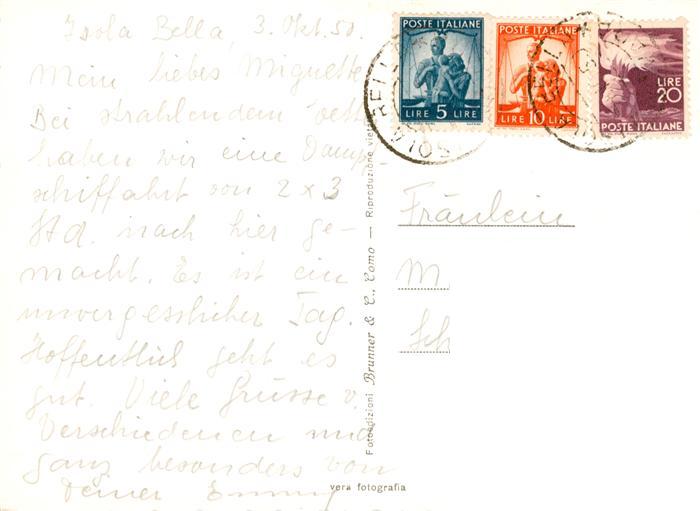 Isola Bella, 3. Okt. 50.
Mein liebes Miguette
Bei strahlendem Wett
haben wir eine Dampf-
schiffahrt von 2 x 3
Std. nach hier ge-
macht. Es ist ein
unvergesslicher Tag.
Hoffentlich geht es
gut. Viele Grüsse v.
Verschiedenen und
ganz besonders von
Deiner Emmy
Fotoedizioni Brunner & C., Como — Riproduzione vietata
vera fotografia
POSTE ITALIANE
LIRE 5 LIRE
POSTE ITALIANE
LIRE 10 LIRE
LIRE
20
POSTE ITALIANE
ISOLA BELLA
Fräulein
M
Sch